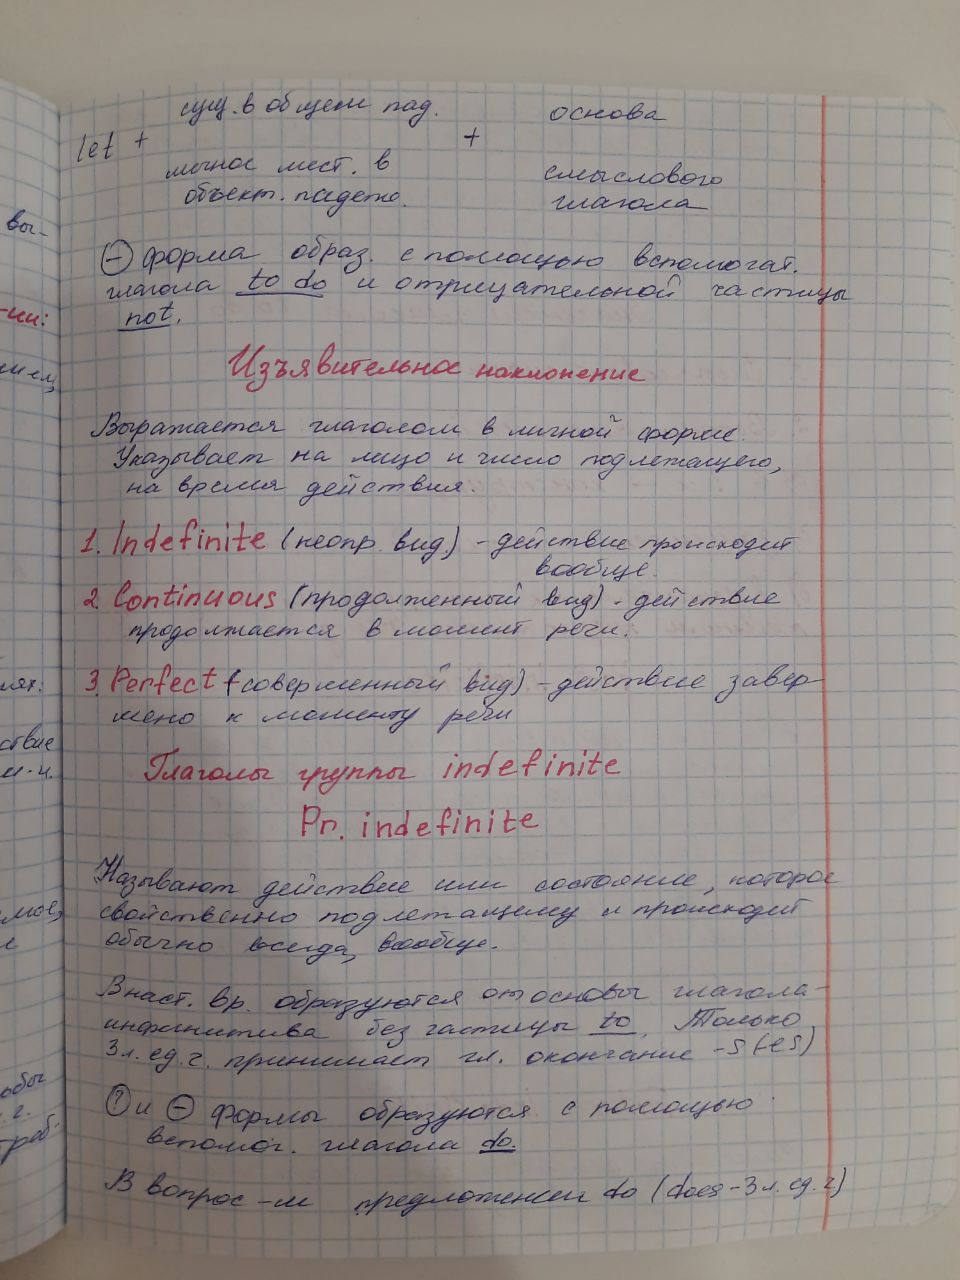 сущ. в общем пад.
основа
let +
+
личное мест. в
объект. падеже.
смыслового
глагола
⊖ форма образ. с помощью вспомогат.
глагола to do и отрицательной частицы
not.
Изъявительное наклонение
Выражается глаголом в личной форме.
Указывает на лицо и число подлежащего,
на время действия.
1. Indefinite (неопр. вид.) - действие происходит
вообще.
2. Continuous (продолженный вид) - действие
продолжается в момент речи.
3. Perfect (совершенный вид) - действие завер-
шено к моменту речи
Глаголы группы indefinite
Pr. indefinite
Называют действие или состояние, которое
свойственно подлежащему и происходит
обычно всегда, вообще.
В наст. вр. образуются от основы глагола-
инфинитива без частицы to. Только
3 л. ед. ч. принимает гл. окончание -s (es)
(?) и ⊖ формы образуются с помощью
вспомог. глагола do.
В вопрос-м предложении do (does - 3 л. ед. ч.)
вы-
-ии:
ием,
иях:
ствие
и.ч.
мое,
обы
г.
раб-